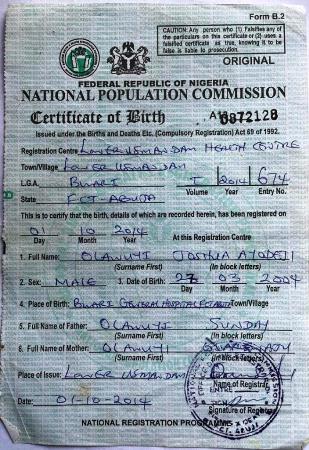 Form B.2
CAUTION: Any person who (1) Falsifies any of the particulars on this certificate or (2) uses a falsified certificate as true, knowing it to be false is liable to prosecution.
ORIGINAL
FEDERAL REPUBLIC OF NIGERIA
NATIONAL POPULATION COMMISSION
Certificate of Birth
0872128
Issued under the Births and Deaths Etc. (Compulsory Registration) Act 69 of 1992.
Registration Centre LOWER USMANDAM HEALTH CENTRE
Town/Village LOWER USMANDAM
L.G.A. BWARI I 2014 674
Volume Year Entry No.
State FCT-ABUJA
This is to certify that the birth, details of which are recorded herein, has been registered on
01 10 2014 At this Registration Centre
Day Month Year
1. Full Name: OLAWUYI JOSHUA AYODEJI
(Surname First) (In block letters)
2. Sex: MALE 3. Date of Birth: 27 03 2004
Day Month Year
4. Place of Birth: BWARI GENERAL HOSPITAL Town/Village
5. Full Name of Father: OLAWUYI SUNDAY
(Surname First) (In block letters)
6. Full Name of Mother: OLAWUYI
(Surname First) (In block letters)
Place of Issue: LOWER USMANDAM
Name of Registrar
Date: 01-10-2014
Signature of Registrar
NATIONAL REGISTRATION PROGRAMME